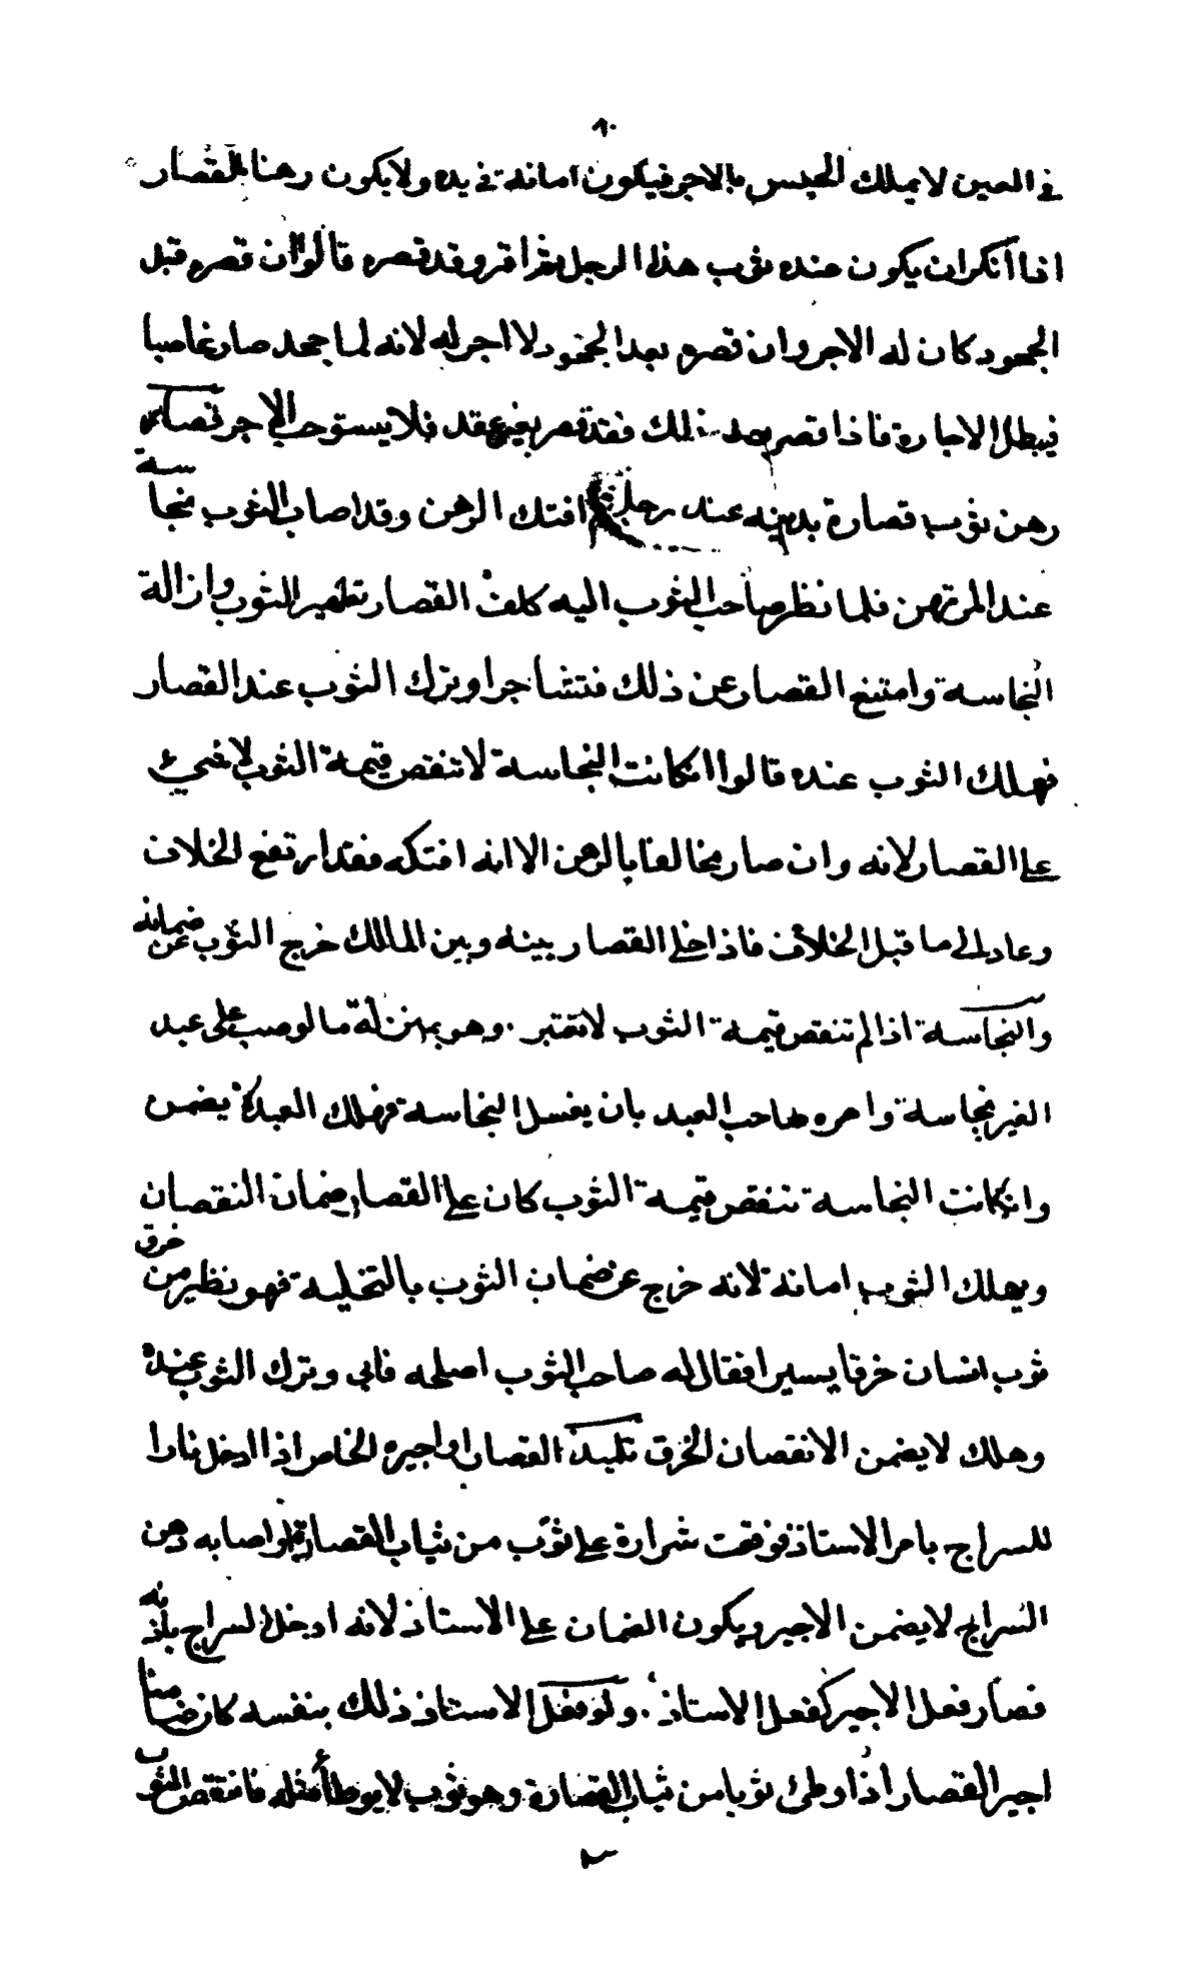 ٨٠
في العين لا يملك الحبس بالاجر فيكون امانة في يده ولا يكون رهنا القصار
اذا انكر ان يكون عنده ثوب هذا الرجل ثم اقر وقد قصره قالوا ان قصره قبل
الجحود كان له الاجر وان قصره بعد الجحود لا اجر له لانه لما جحد صار غاصبا
فيبطل الاجارة فاذا قصر بعد ذلك فقد قصر بغير عقد فلا يستوجب الاجر قصار
رهن ثوب قصارة بدينه عند رجل ثم افتك الرهن وقد اصاب الثوب نجاسة
عند المرتهن فلما نظر صاحب الثوب اليه كلف القصار تطهير الثوب وازالة
النجاسة وامتنع القصار عن ذلك فتشاجرا وترك الثوب عند القصار
فهلك الثوب عنده قالوا انكانت النجاسة لا تنقص قيمة الثوب لا شيء
على القصار لانه وان صار مخالفا بالرهن الا انه افتكه فقد ارتفع الخلاف
وعاد الى ما قبل الخلاف فاذا خلى القصار بينه وبين المالك خرج الثوب عن ضمانه
والنجاسة اذا لم تنقص قيمة الثوب لا تعتبر . وهو بمنزلة ما لو صب على عبد
الغير نجاسة وامره صاحب العبد بان يغسل النجاسة فهلك العبد لا يضمن
وانكانت النجاسة تنقص قيمة الثوب كان على القصار ضمان النقصان
ويهلك الثوب امانة لانه خرج عن ضمان الثوب بالتخلية فهو نظير من خرق
ثوب انسان خرقا يسيرا فقال له صاحب الثوب اصلحه فابى وترك الثوب عنده
وهلك لا يضمن الا نقصان الخرق تلميذ القصار او اجيره الخاص اذا ادخل نارا
للسراج بامر الاستاذ فوقعت شرارة على ثوب من ثياب القصارة او اصابه دهن
السراج لا يضمن الاجير ويكون الضمان على الاستاذ لانه ادخل السراج باذنه
فصار فعل الاجير كفعل الاستاذ . ولو فعل الاستاذ ذلك بنفسه كان ضامنا
اجير القصار اذا وطئ ثوبا من ثياب القصارة وهو ثوب لا يوطأ مثله فانتقص الثوب